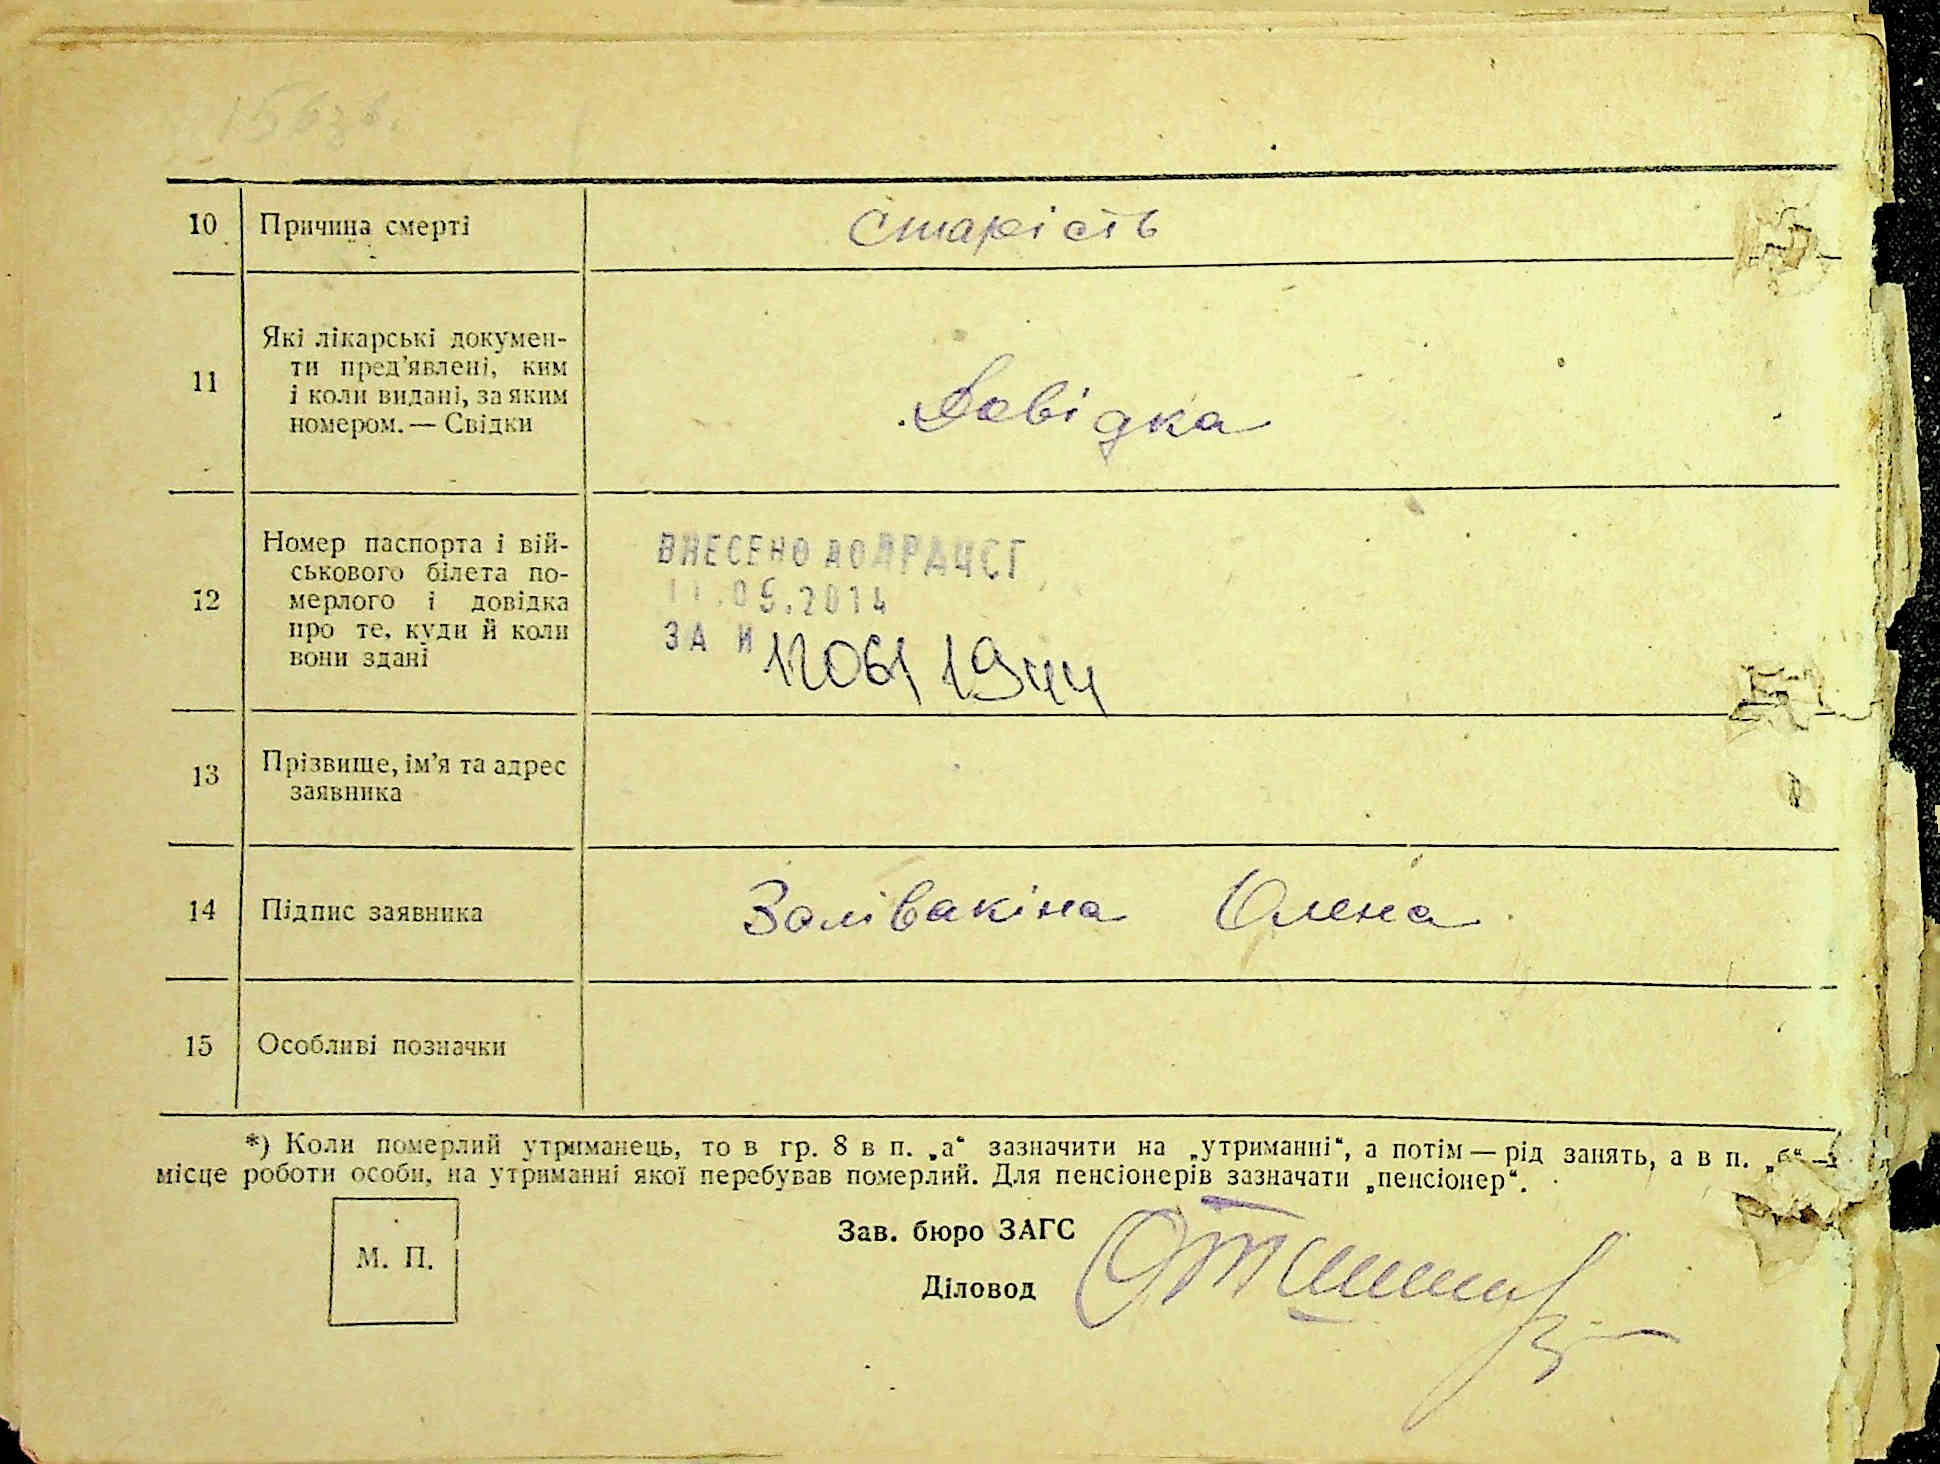 10 Причина смерті старість
11 Які лікарські докумен-
ти пред'явлені, ким
і коли видані, за яким
номером. — Свідки
Довідка
12 Номер паспорта і вій-
ськового білета по-
мерлого і довідка
про те, куди й коли
вони здані
ВНЕСЕНО ДО ДРАЦСГ
11.05.2014
ЗА №
1944
13 Прізвище, ім'я та адрес
заявника
14 Підпис заявника Залівакіна Олена
15 Особливі позначки
*) Коли померлий утриманець, то в гр. 8 в п. „а“ зазначити на „утриманні“, а потім — рід занять, а в п. „б“ —
місце роботи особи, на утриманні якої перебував померлий. Для пенсіонерів зазначати „пенсіонер“.
М. П.
Зав. бюро ЗАГС
Діловод